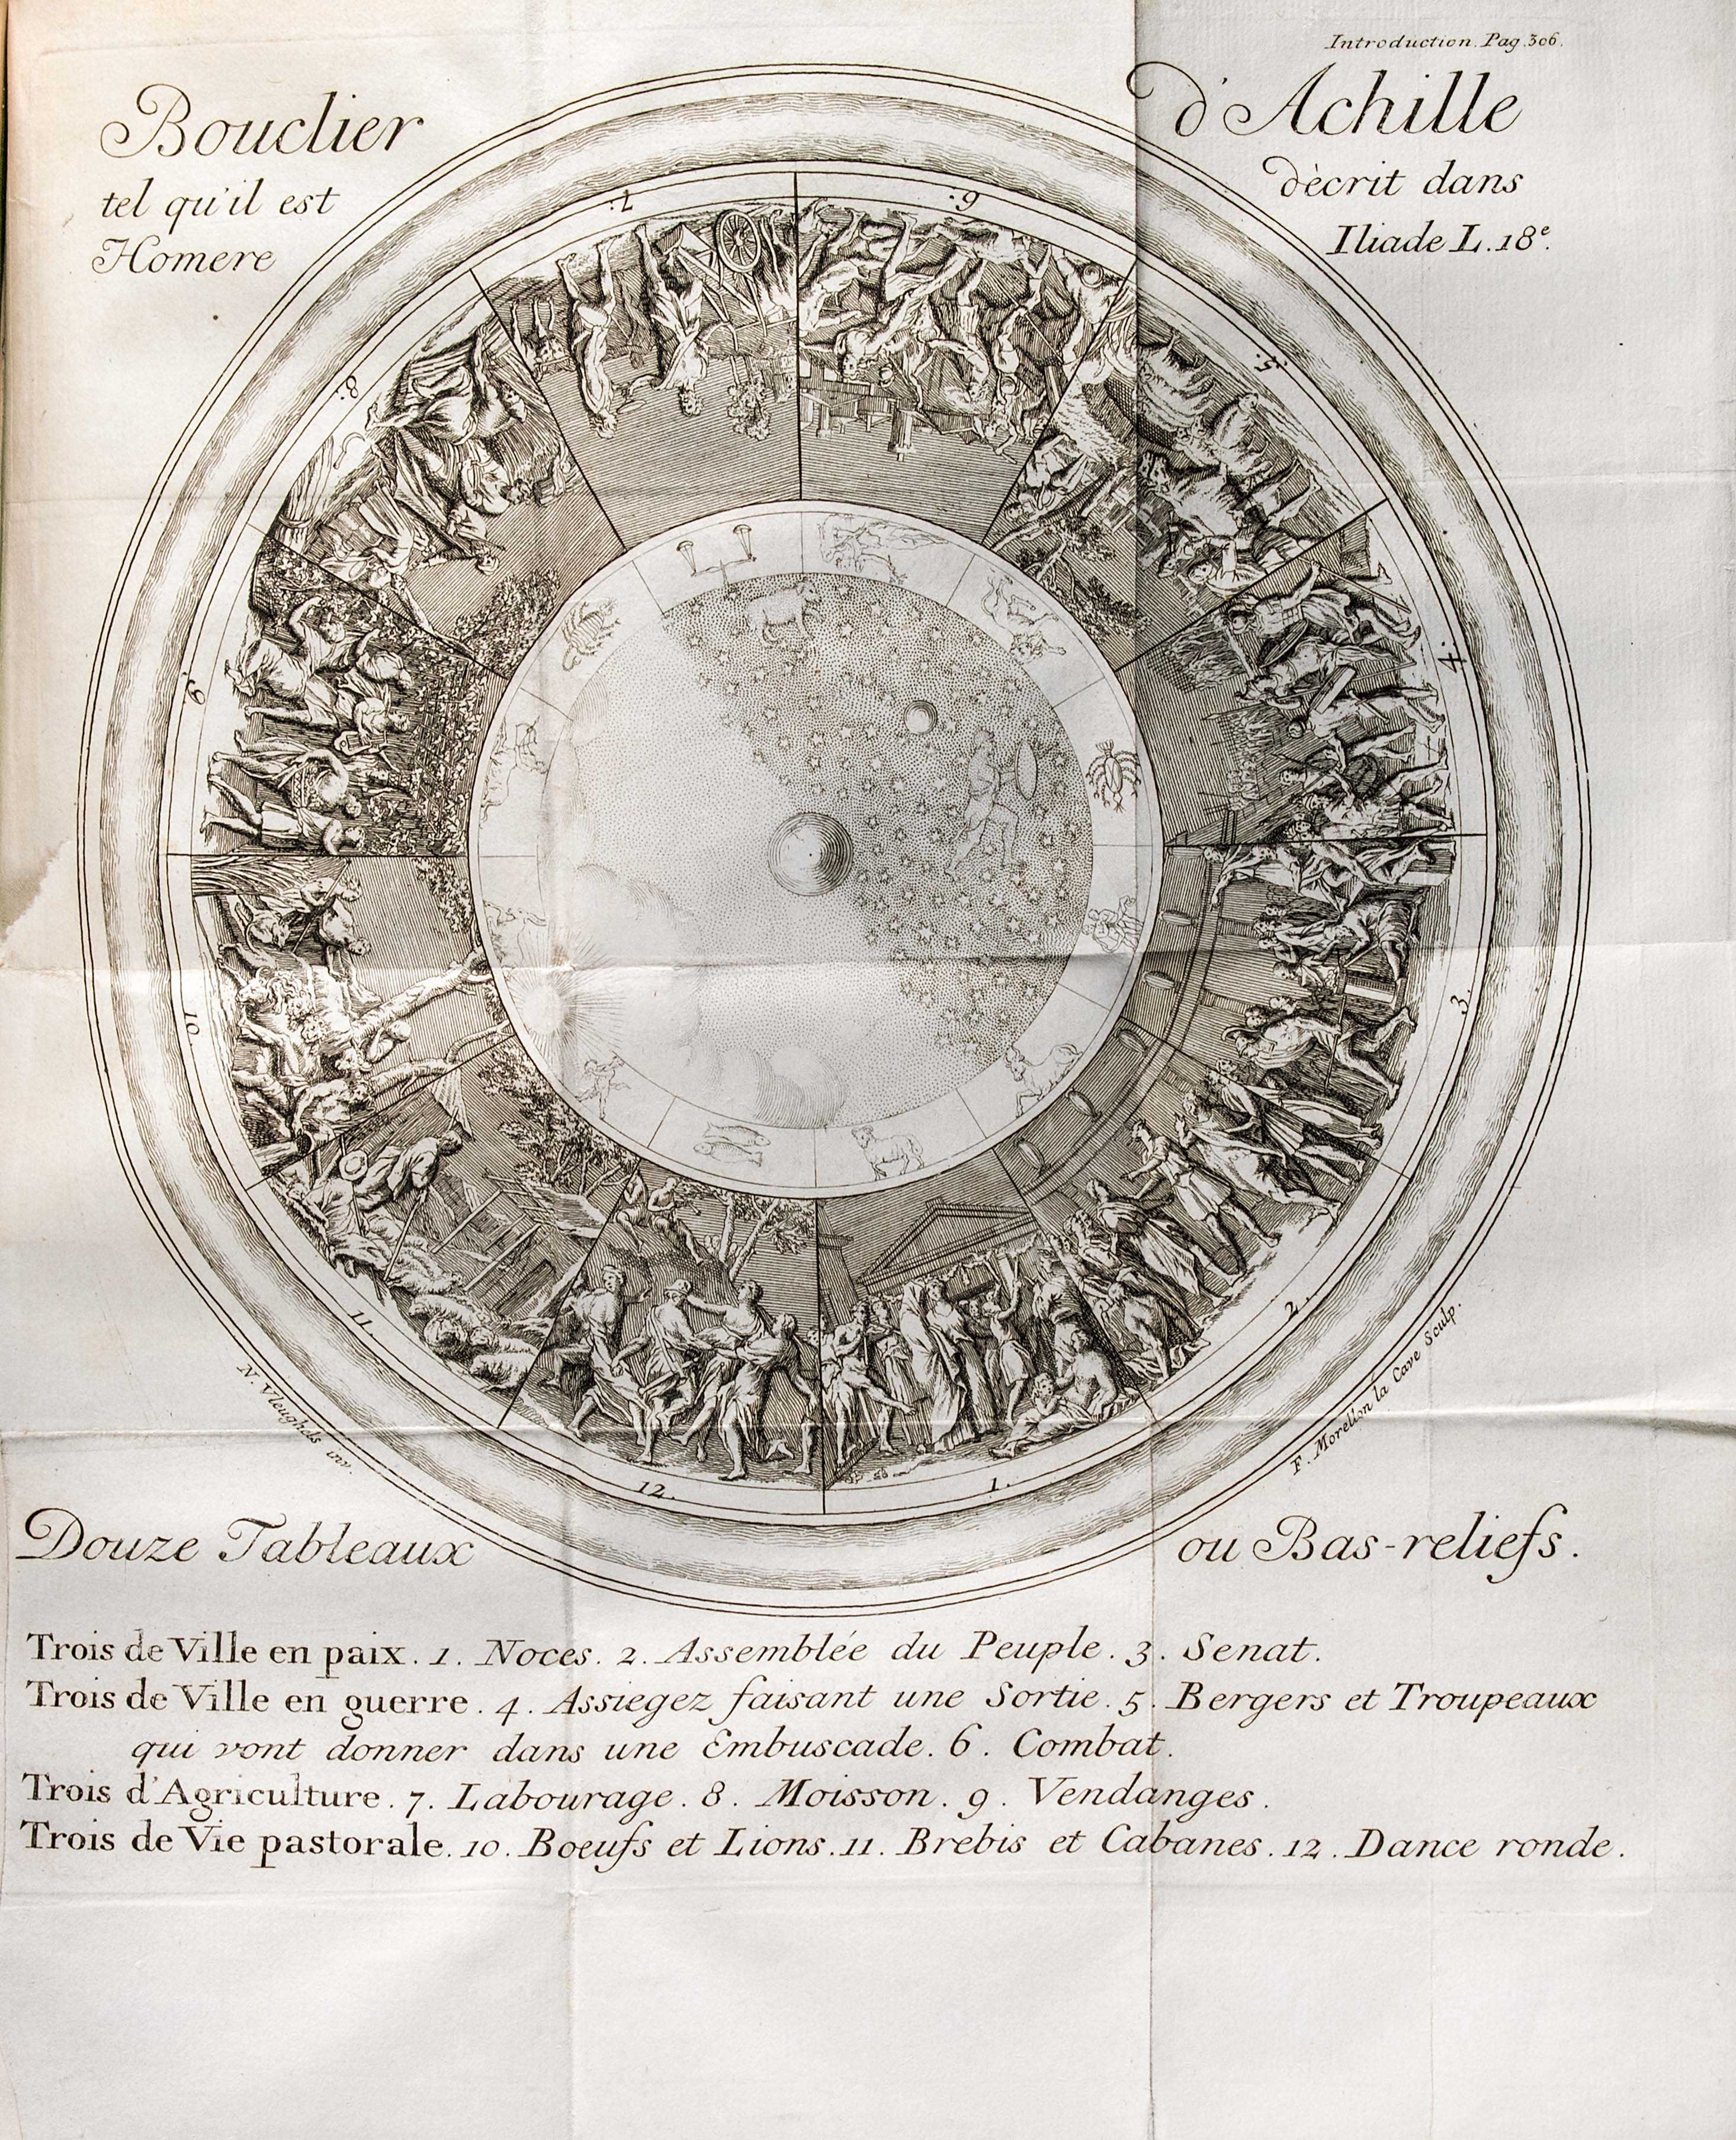 Introduction. Pag. 306.
Bouclier d'Achille
tel qu'il est dècrit dans
Homere Iliade L. 18e.
7.
6.
8.
5.
9.
4.
10.
3.
11.
2.
12.
1.
N. Vleughels inv.
F. Morellon la Cave Sculp.
Douze Tableaux ou Bas-reliefs.
Trois de Ville en paix. 1. Noces. 2. Assemblée du Peuple. 3. Senat.
Trois de Ville en guerre. 4. Assiegez faisant une Sortie. 5. Bergers et Troupeaux
qui vont donner dans une Embuscade. 6. Combat.
Trois d'Agriculture. 7. Labourage. 8. Moisson. 9. Vendanges.
Trois de Vie pastorale. 10. Boeufs et Lions. 11. Brebis et Cabanes. 12. Dance ronde.